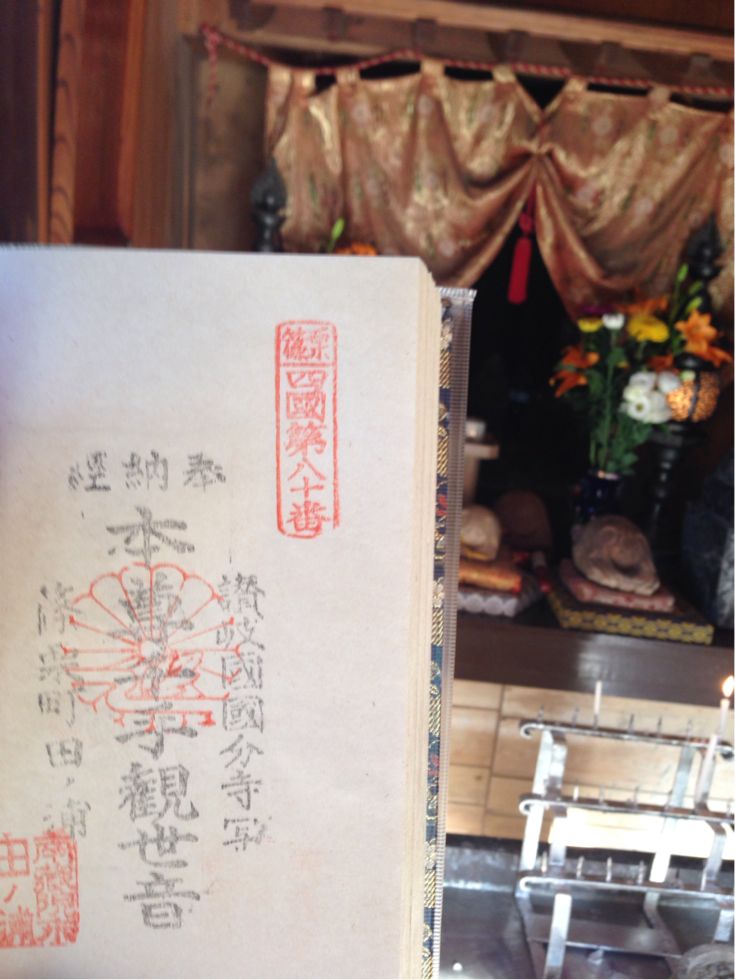 篠栗
四國第八十番
奉納經
讃岐國國分寺写
本尊千手観世音
篠栗町田ノ浦
田ノ浦